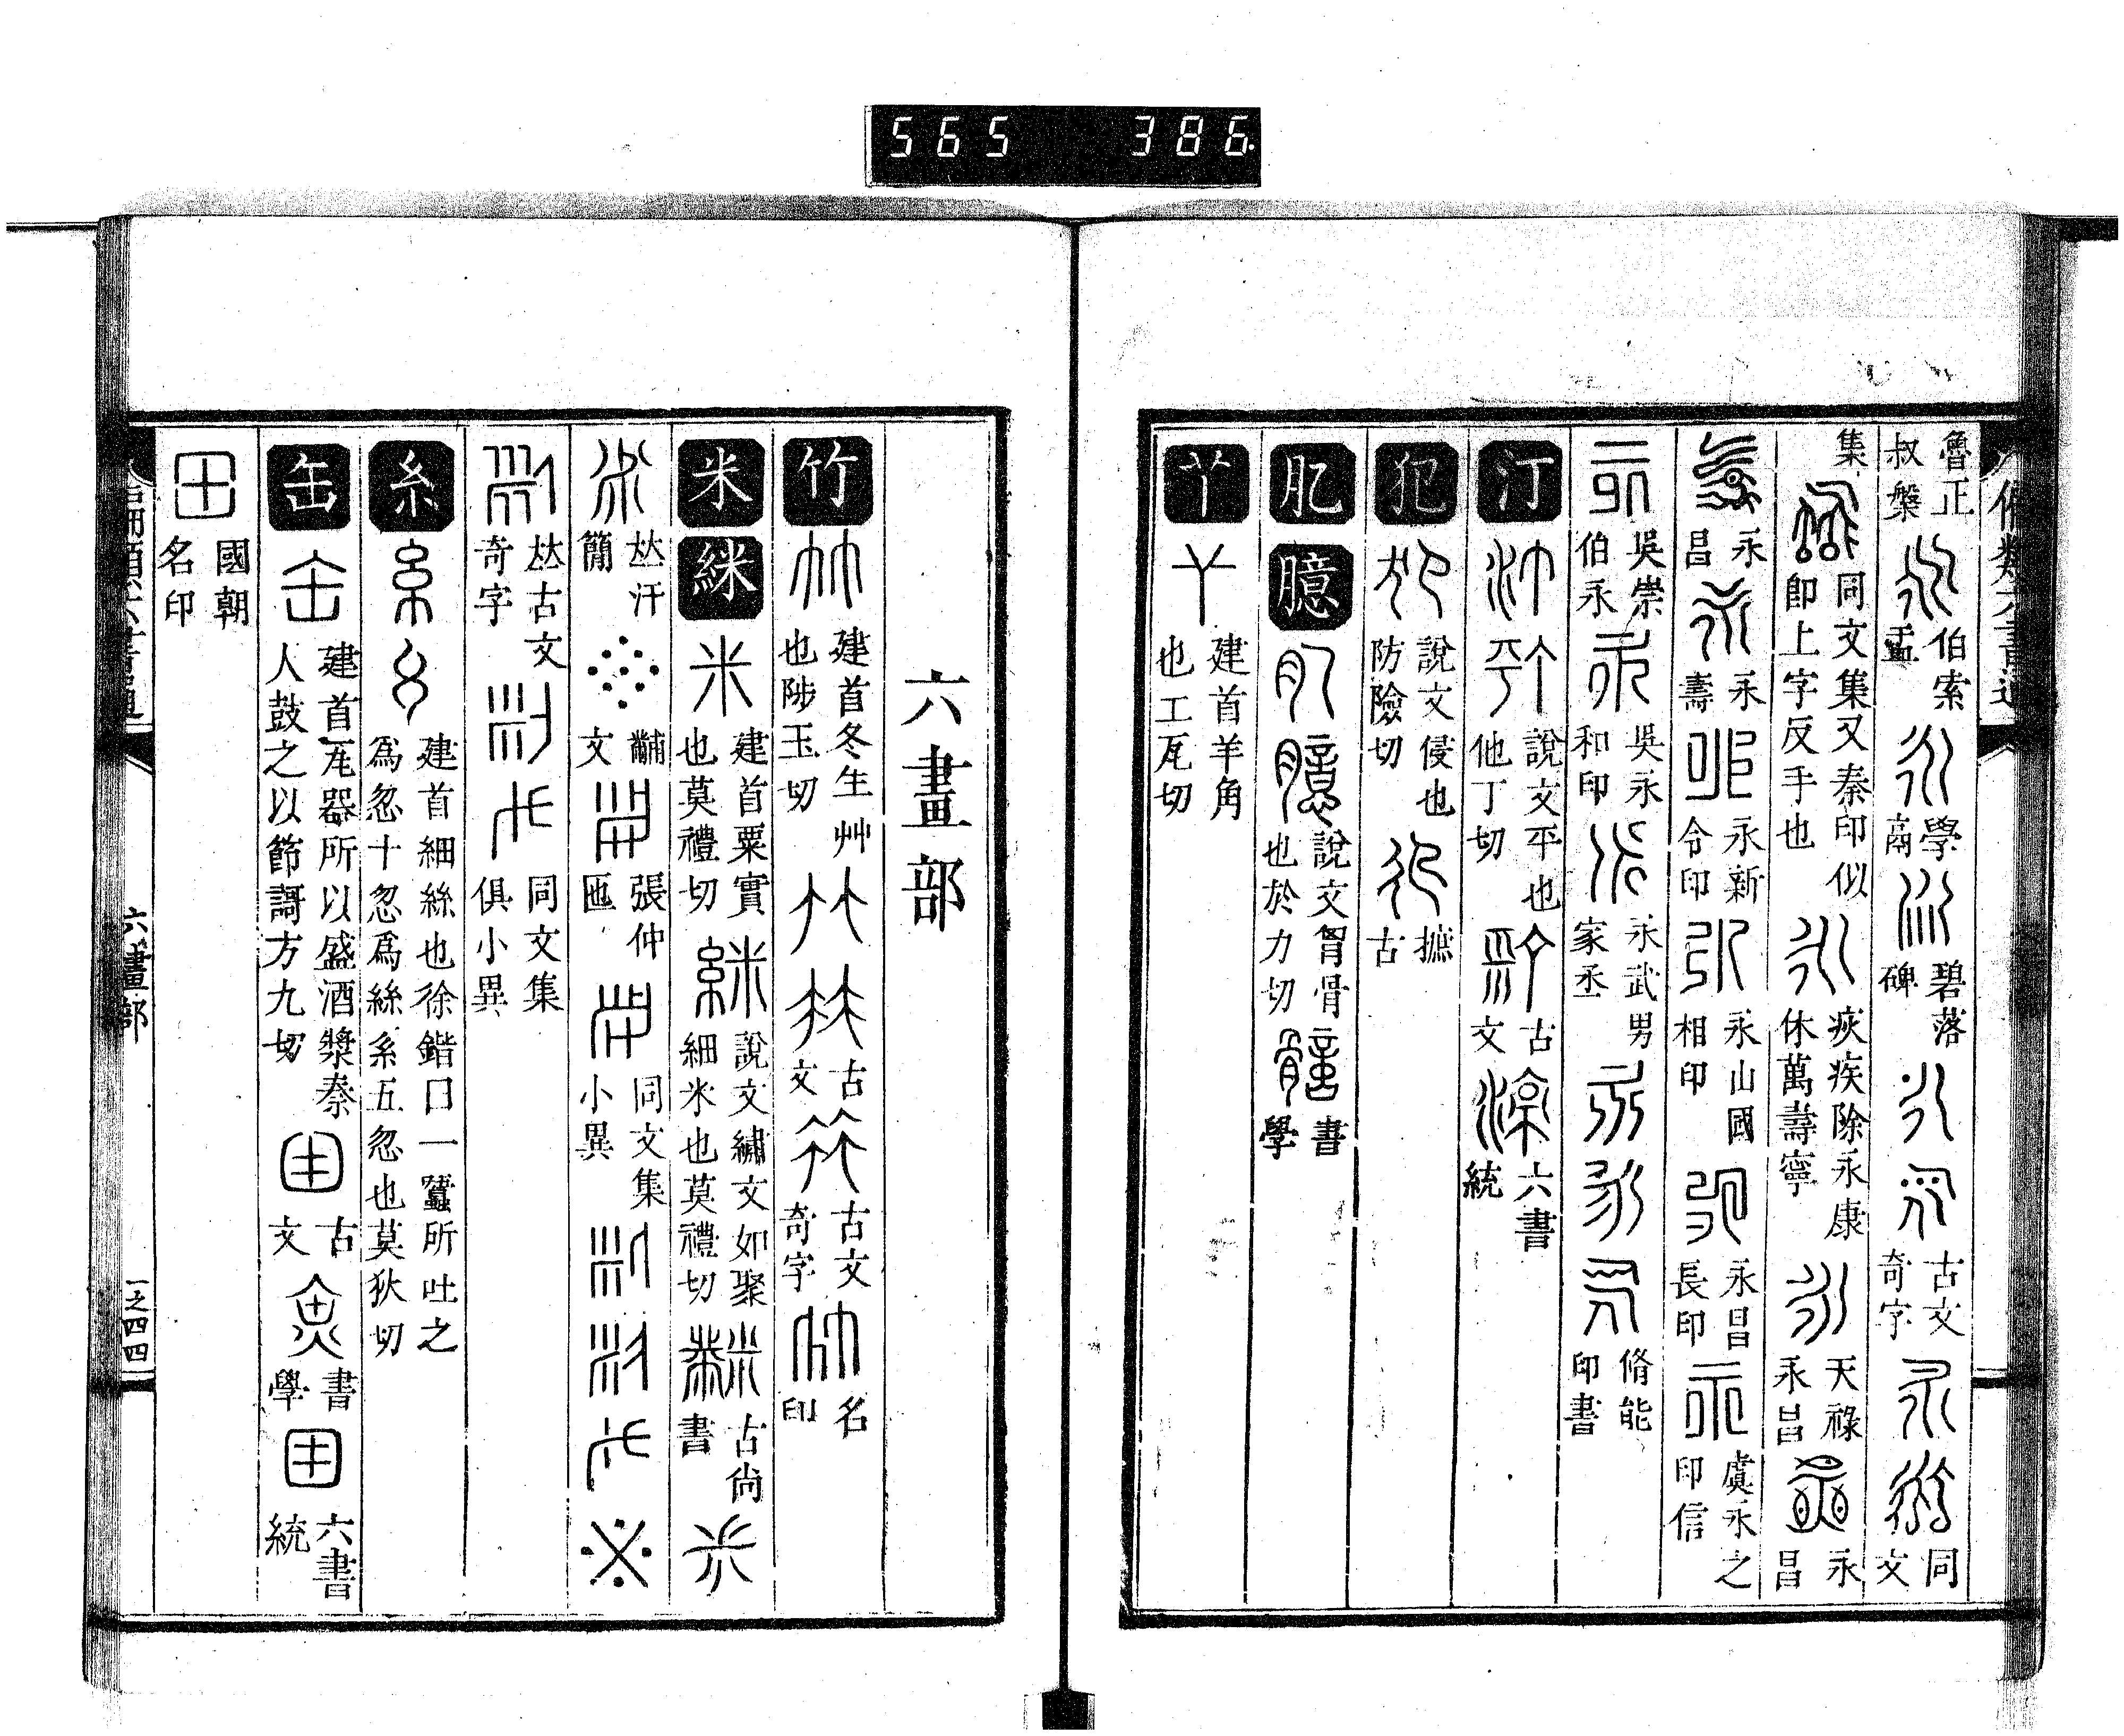 565 386
魯正叔槃
伯索盂
學鬲
碧落碑
古文奇字
同文
集
同文集又秦印似即上字反手也
疢疾除永康休萬壽寧
天祿永昌
永昌
永昌
永壽
永新令印
永山國相印
永昌長印
虞永之印信
吳崇伯永
吳永和印
永武男家丞
脩能印書
汀 說文平也他丁切
古文
六書統
犯 說文侵也防險切
摭古
肊 臆 說文胷骨也於力切
書學
𦫳 建首羊角也工瓦切
六畫部
竹 建首冬生艸也陟玉切
古文
古文奇字
名印
米 䋛 建首粟實也莫禮切
說文繡文如聚細米也莫禮切
古尚書
𠀤汗簡
黼文
張仲匜
同文集小異
𠀤古文奇字
同文集俱小異
糸 建首細絲也徐鍇曰一蠶所吐之為忽十忽為絲糸五忽也莫狄切
缶 建首瓦器所以盛酒漿秦人鼓之以節謌方九切
古文
書學
六書統
國朝名印
六畫部
一之四四